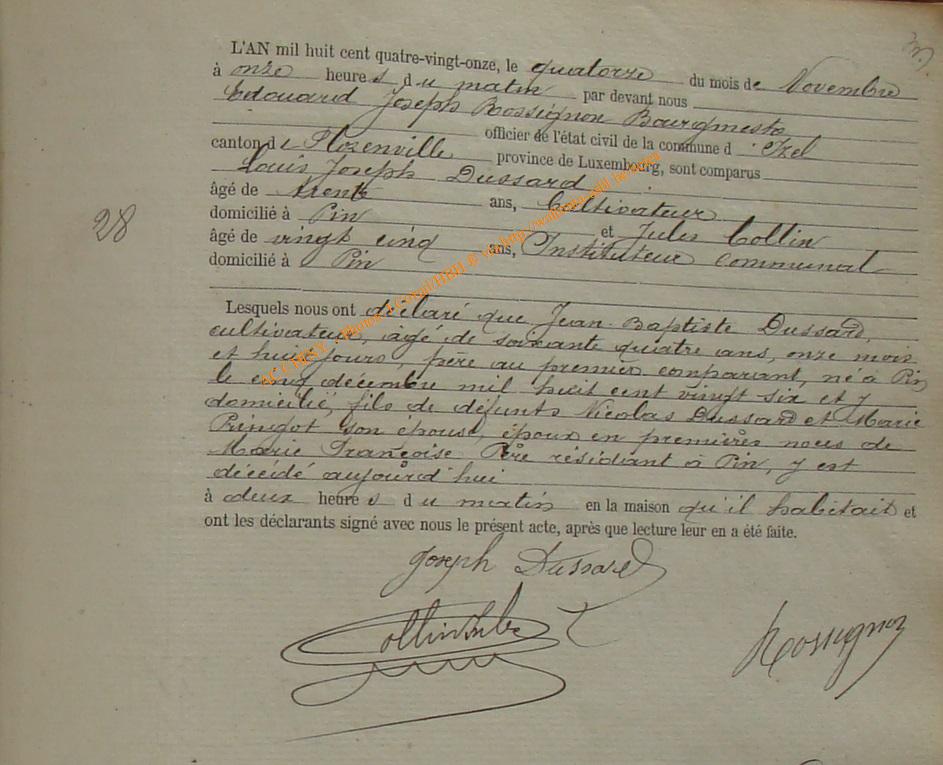 L'AN mil huit cent quatre-vingt-onze, le quatorze du mois de Novembre
à onze heures du matin par devant nous
Edouard Joseph Rossignon Bourgmestre
officier de l'état civil de la commune d'Izel
canton de Florenville province de Luxembourg, sont comparus
Louis Joseph Dussard
âgé de trente ans, Cultivateur
domicilié à Pin et Jules Collin
âgé de vingt cinq ans, Instituteur communal
domicilié à Pin
28
Lesquels nous ont déclaré que Jean-Baptiste Dussard,
cultivateur, âgé de soixante quatre ans, onze mois
et huit jours, père au premier comparant, né à Pin
le cinq décembre mil huit cent vingt six et y
domicilié, fils de défunts Nicolas Dussard et Marie
son épouse, époux en premières noces de
Marie Françoise Père résidant à Pin, y est
décédé aujourd'hui
à deux heures du matin en la maison qu'il habitait et
ont les déclarants signé avec nous le présent acte, après que lecture leur en a été faite.
Joseph Dussard
Collin Jules
Rossignon